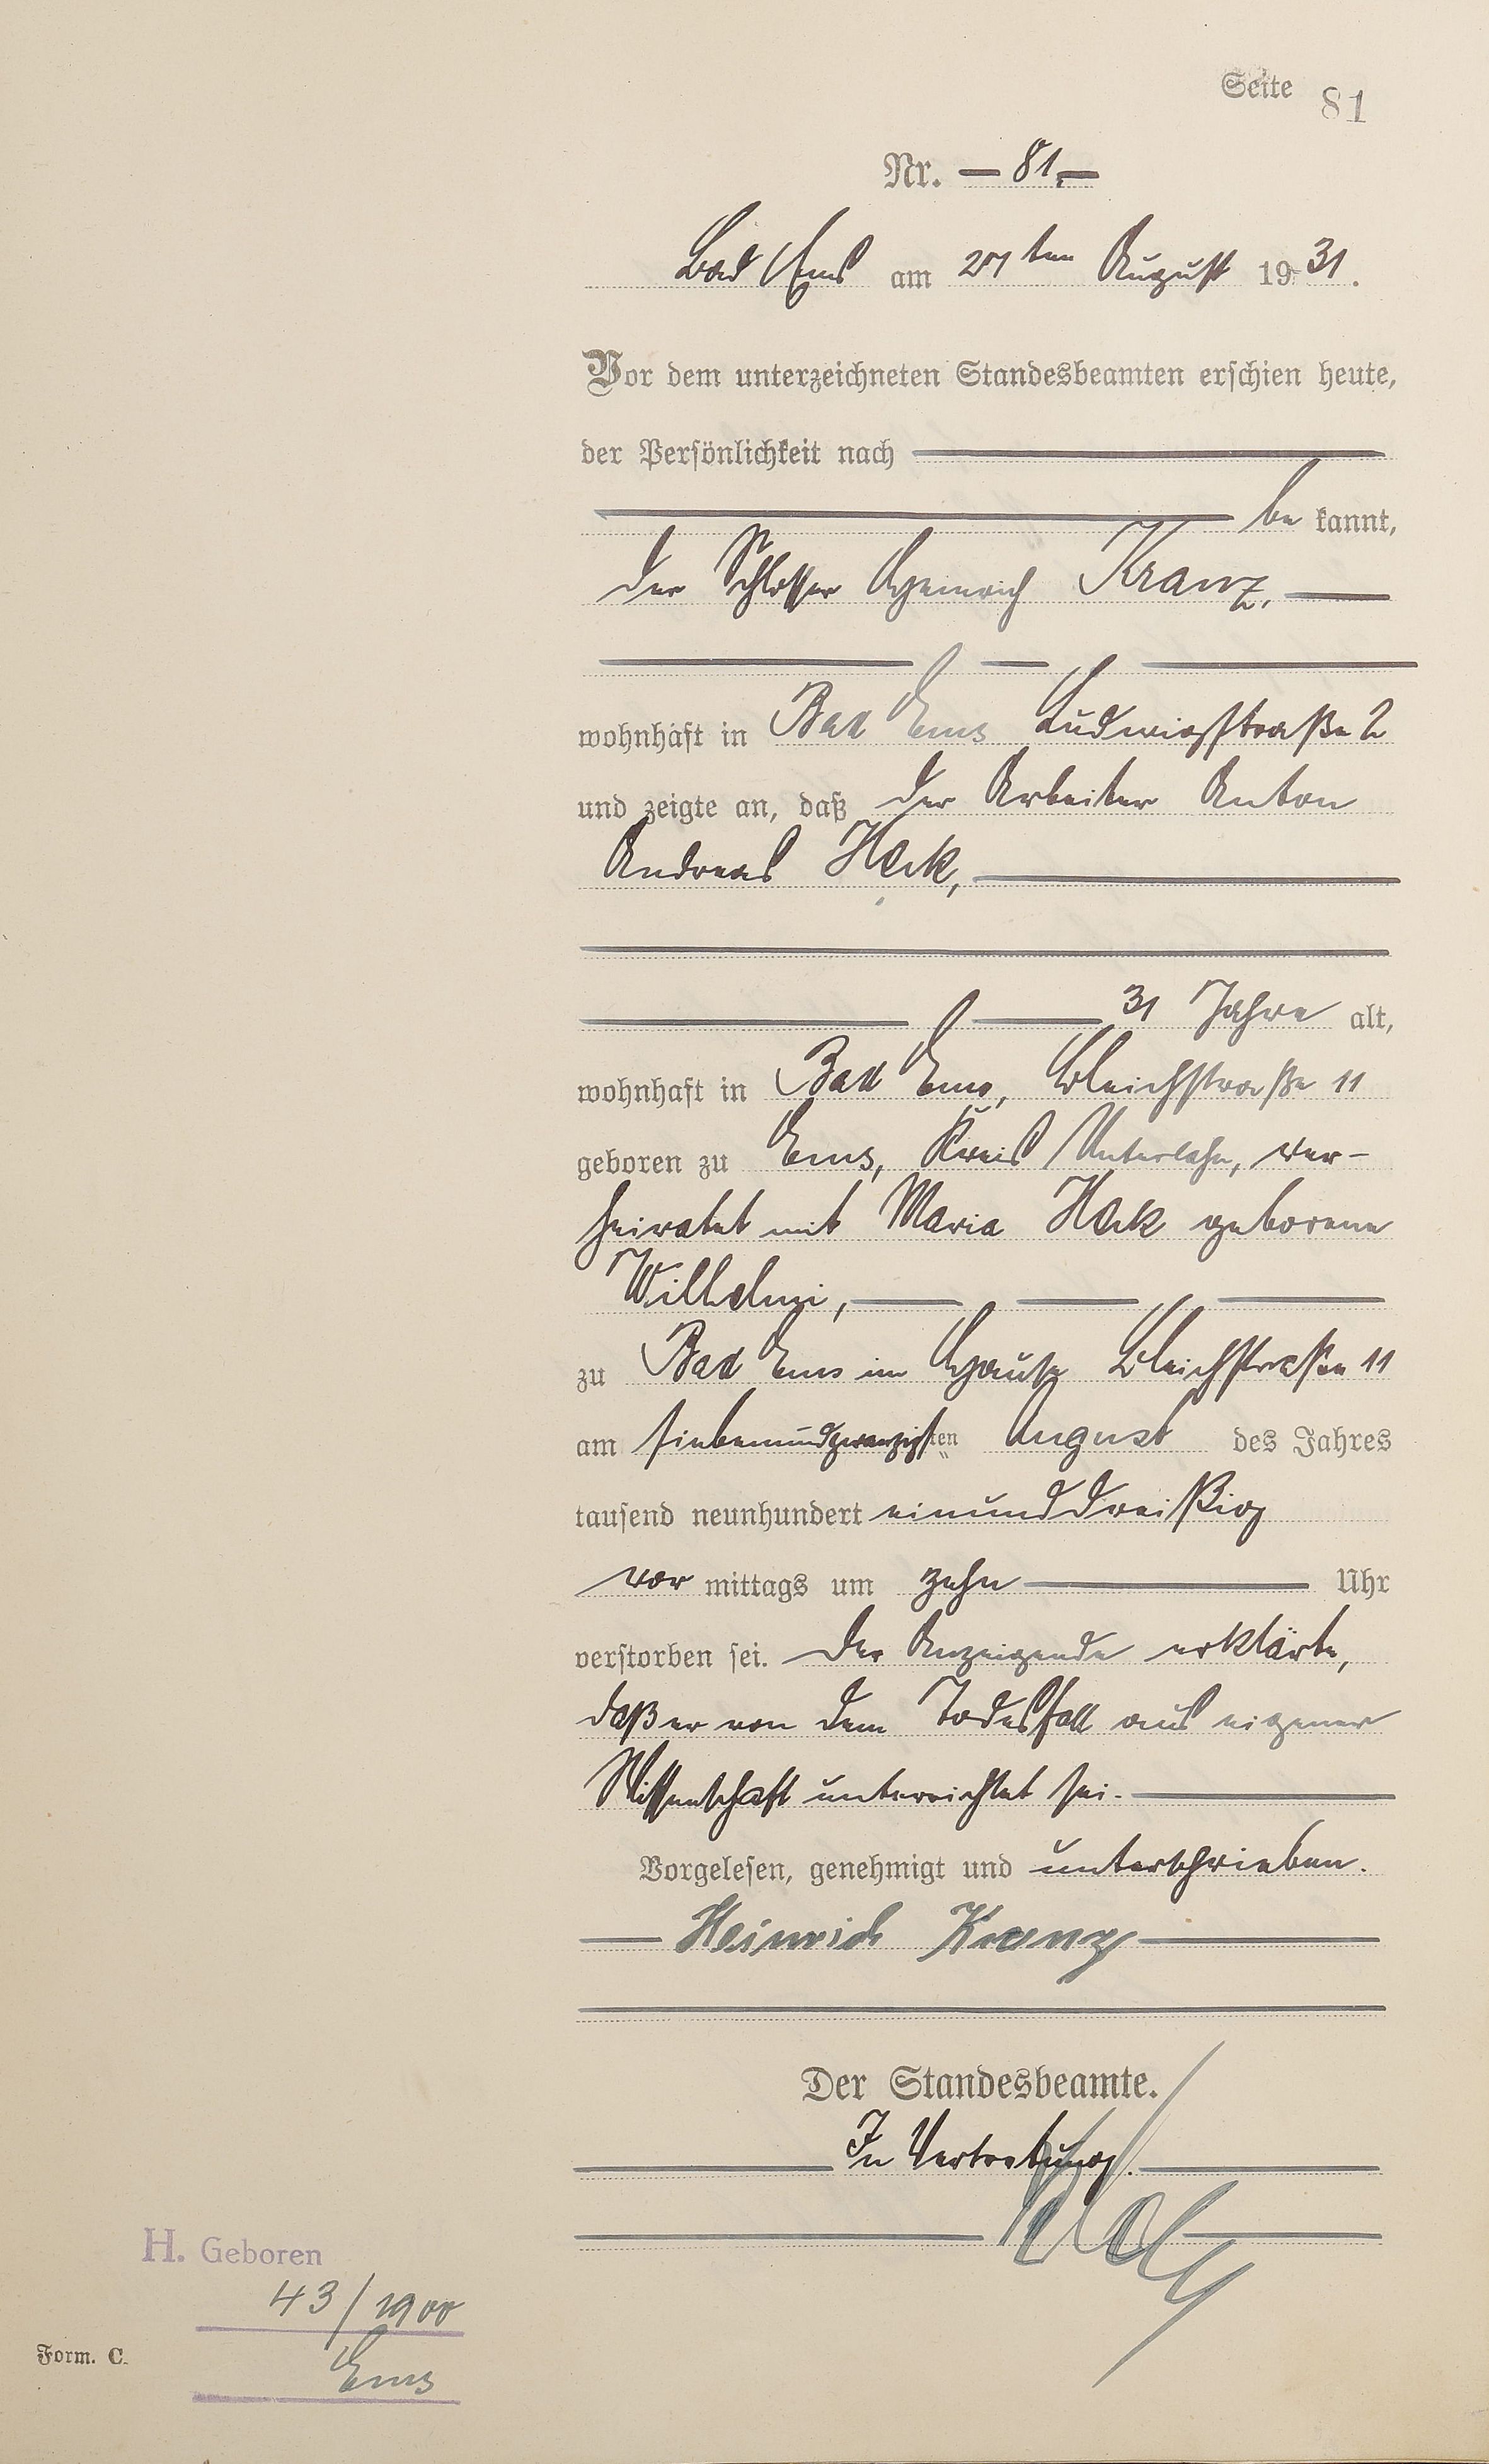 Seite 81
Nr. — 81. —
Bad Ems am 27ten August 1931.
Vor dem unterzeichneten Standesbeamten erschien heute,
der Persönlichkeit nach
be kannt,
der Schlosser Heinrich Kranz,
wohnhaft in Bad Ems Ludwigstraße 2
und zeigte an, daß der Arbeiter Anton
Andreas Hock,
31 Jahre alt,
wohnhaft in Bad Ems, Bleichstraße 11
geboren zu Ems, Kreis Unterlahn, ver-
heiratet mit Maria Hock geborene
Wilhelmi,
zu Bad Ems im Hause Bleichstraße 11
am siebenundzwanzigsten August des Jahres
tausend neunhundert einunddreißig
vor mittags um zehn Uhr
verstorben sei. Der Anzeigende erklärte,
daß er von dem Todesfall aus eigener
Wissenschaft unterrichtet sei.
Vorgelesen, genehmigt und unterschrieben.
Heinrich Kranz
Der Standesbeamte.
In Vertretung.
H. Geboren
43/1900
Form. C.
Ems